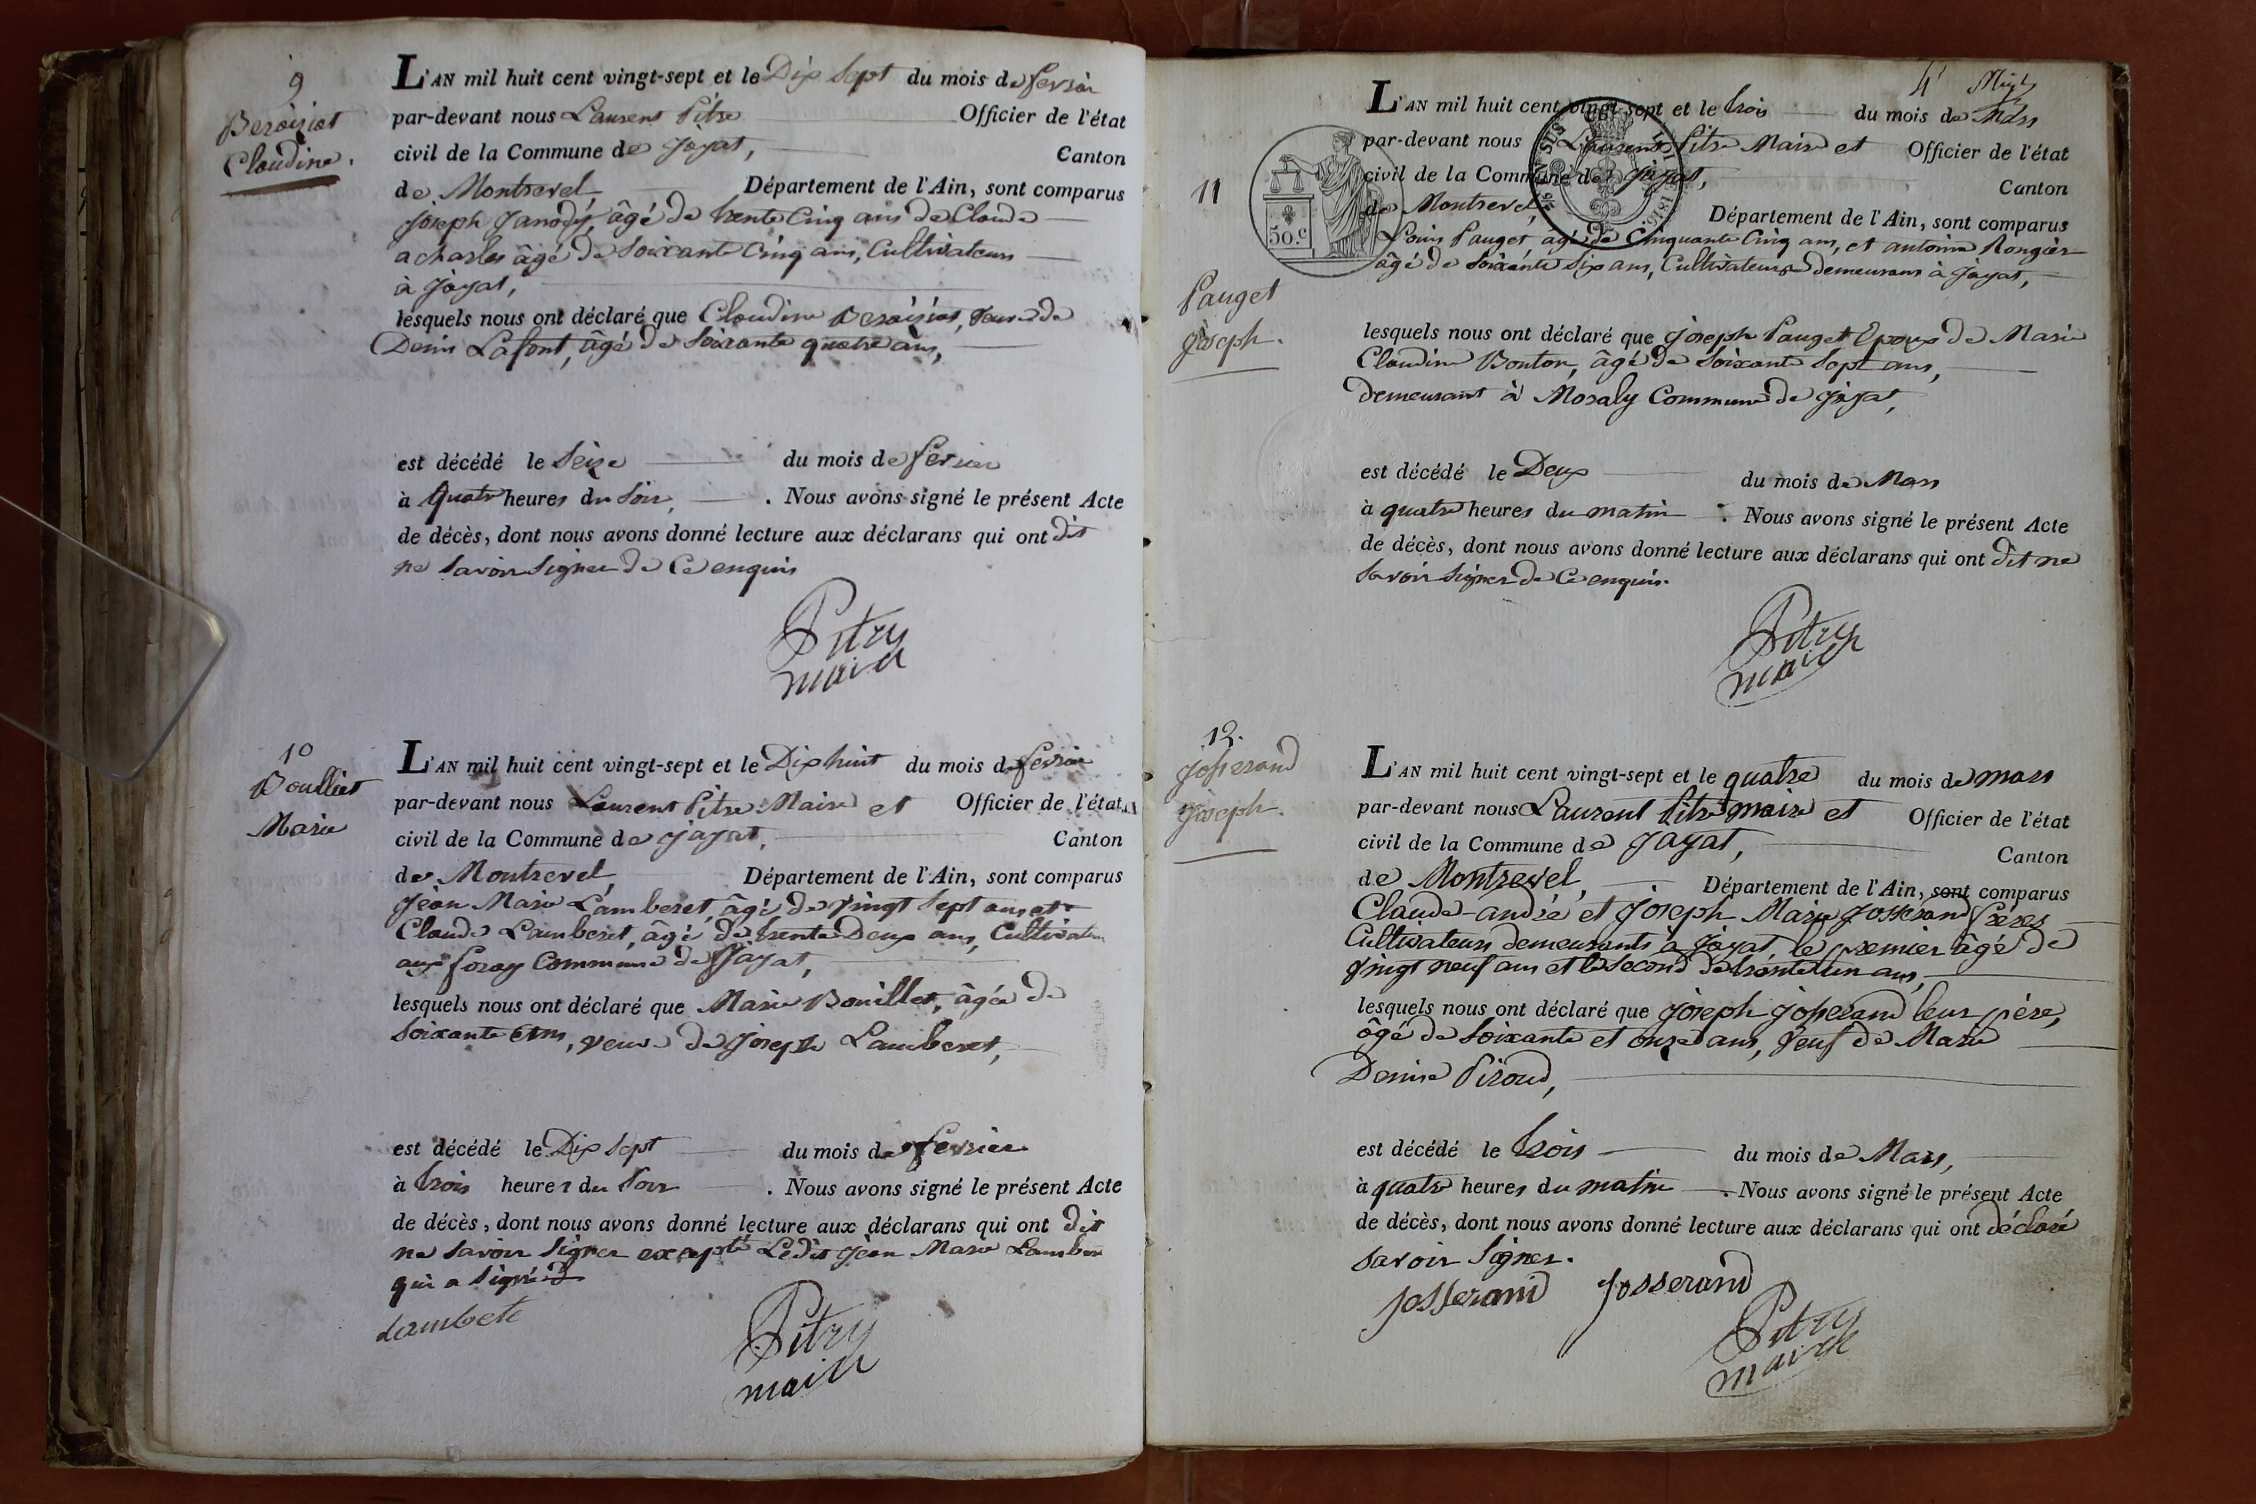 9
Beroisiat
Claudine.
L'AN mil huit cent vingt-sept et le Dix sept du mois de fevrier
par-devant nous Laurent Pitre Officier de l'état
civil de la Commune de Jayat, Canton
de Montrevel Département de l'Ain, sont comparus
Joseph Janody, âgé de trente Cinq ans de Claude
a charles âgé de Soixante Cinq ans, Cultivateurs
à Jayat,
lesquels nous ont déclaré que Claudine Beroisiat, veuve de
Denis Lafont, âgé de Soixante quatre ans,
est décédé le Seize du mois de fevrier
à quatre heures du Soir, . Nous avons signé le présent Acte
de décès, dont nous avons donné lecture aux déclarans qui ont dit
ne Savoir Signer de Ce enquis
Pitre
maire
10
Boulliet
Marie
L'AN mil huit cent vingt-sept et le Dix huit du mois de fevrier
par-devant nous Laurent Pitre Maire et Officier de l'état
civil de la Commune de Jayat, Canton
de Montrevel, Département de l'Ain, sont comparus
Jean Marie Lamberet, âgé de vingt Sept ans et
Claude Lamberet, âgé de trente Deux ans, Cultivateurs
aux foray Commune de Jayat,
lesquels nous ont déclaré que Marie Bouillet, âgée de
Soixante ans, veuve de Joseph Lamberet,
est décédé le Dix Sept du mois de fevrier
à trois heures du Soir . Nous avons signé le présent Acte
de décès, dont nous avons donné lecture aux déclarans qui ont dit
ne Savoir Signer excepté Ledit Jean Marie Lamber
qui a Signé
Lambert
Pitre
maire
11
Pauget
Joseph.
50.c
L'AN mil huit cent vingt-sept et le trois du mois de Mars
par-devant nous Laurent Pitre Maire et Officier de l'état
civil de la Commune de Jayat, Canton
de Montrevel, Département de l'Ain, sont comparus
Louis Pauget, âgé de Cinquante Cinq ans, et antoine Rongier
âgé de Soixante Six ans, Cultivateurs demeurans à Jayat,
lesquels nous ont déclaré que Joseph Pauget Epoux de Marie
Claudine Bonton, âgé de Soixante Sept ans,
demeurant à Mosaly Commune de Jayat,
est décédé le Deux du mois de Mars
à quatre heures du matin . Nous avons signé le présent Acte
de décès, dont nous avons donné lecture aux déclarans qui ont dit ne
Savoir Signer de Ce enquis.
Pitre
maire
12.
Josserand
Joseph.
L'AN mil huit cent vingt-sept et le quatre du mois de mars
par-devant nous Laurent Pitre maire et Officier de l'état
civil de la Commune de Jayat, Canton
de Montrevel, Département de l'Ain, sont comparus
Claude-andré et Joseph Marie Josserand frères
Cultivateurs demeurants à Jayat le premier âgé de
vingt neuf ans et le Second de trente un ans,
lesquels nous ont déclaré que Joseph Josserand leur père,
âgé de Soixante et onze ans, Veuf de Marie
Denise Piroud,
est décédé le trois du mois de Mars,
à quatre heures du matin . Nous avons signé le présent Acte
de décès, dont nous avons donné lecture aux déclarans qui ont déclaré
Savoir Signer.
Josserand Josserand
Pitre
maire